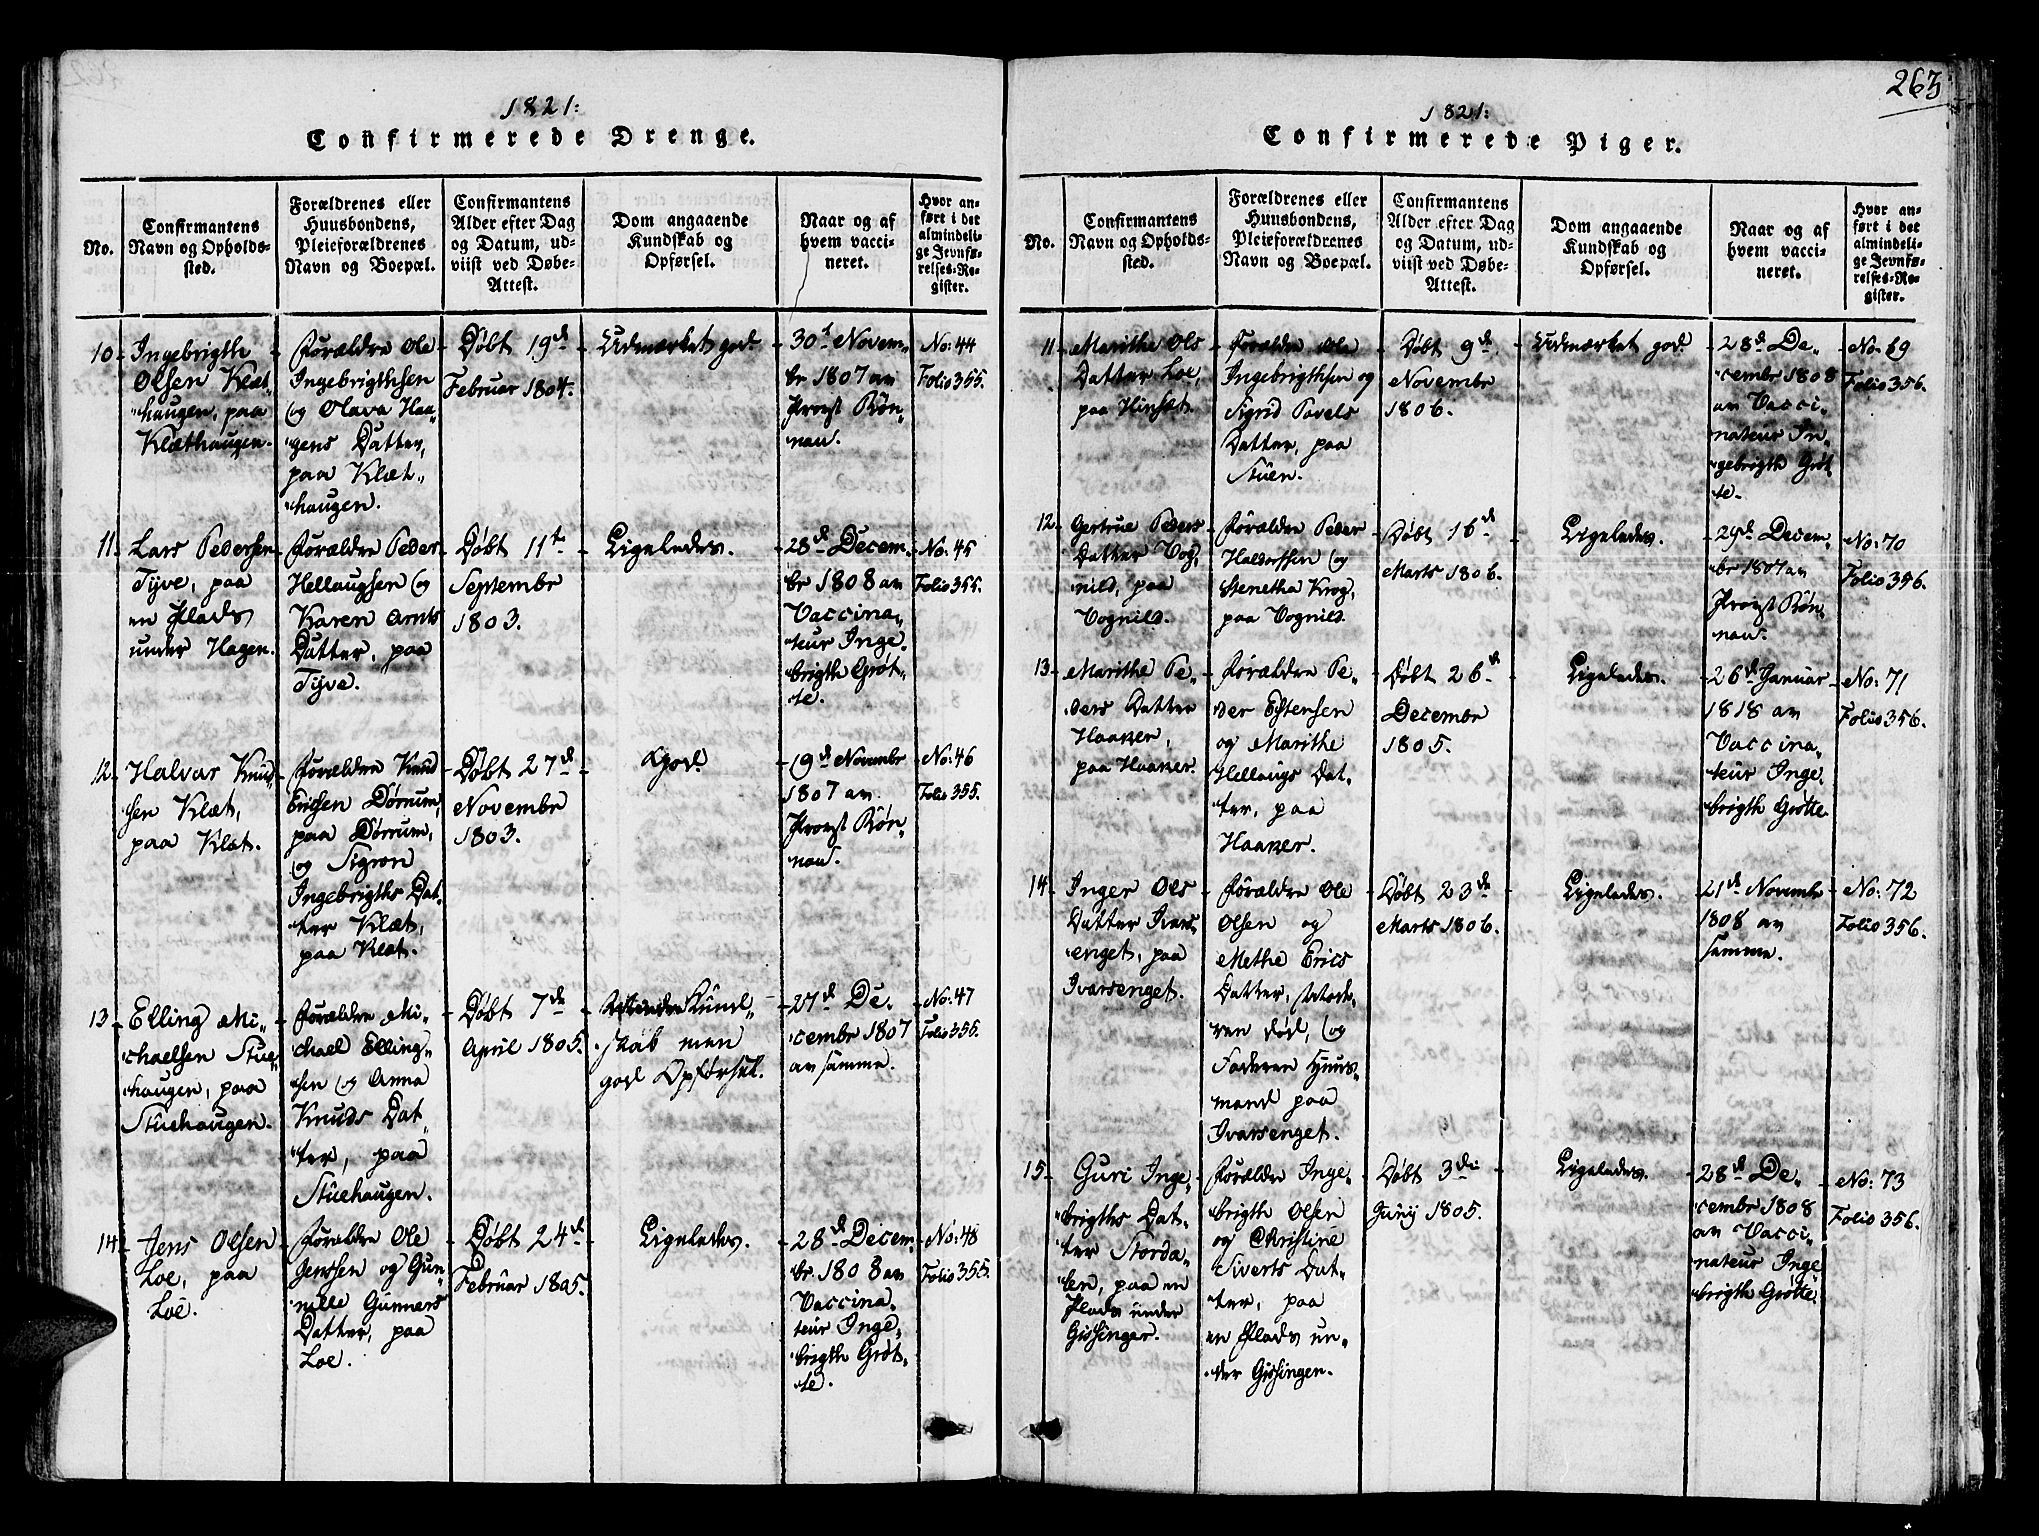 263
1821:
Confirmerede Drenge.
No.
Confirmantens
Navn og Opholds-
sted.
Forældrenes eller
Huusbondens,
Pleieforældrenes
Navn og Boepæl.
Confirmantens
Alder efter Dag
og Datum, ud-
viist ved Døbe-
Attest.
Dom angaaende
Kundskab og
Opførsel.
Naar og af
hvem vacci-
neret.
Hvor an-
ført i det
almindeli-
ge Jevnfø-
relses-Re-
gister.
10
Ingebrigth
Olsen Klæt-
haugen, paa
Klæthaugen.
Forældre Ole
Ingebrigthsen
og Olava Haa-
gens Datter,
paa Klæt-
haugen.
Døbt 19de
Februar 1804.
Udmærket god.
30te Novem-
br 1807 av
Provst Røn-
nau.
No: 44
Folio 355.
11
Lars Pedersen
Tyve, paa
en Plads
under Hagen.
Forældre Peder
Hellaugsen og
Karen Arnts
Datter, paa
Tyve.
Døbt 11te
Septembr
1803.
Ligeledes.
28de Decem-
br 1808 av
Vaccina-
teur Inge-
brigth Grøt-
te.
No: 45
Folio 355.
12
Halvar Knud-
sen Klæt,
paa Klæt.
Forældre Knud
Ericsen Dørrum,
paa Dørrum,
og Sigron
Ingebrigths Dat-
ter Klæt,
paa Klæt.
Døbt 27de
Novembr
1803.
God.
19de Novembr
1807 av
Provst Røn-
nau.
No: 46
Folio 355.
13
Elling Mi-
chaelsen Stue-
haugen, paa
Stuehaugen.
Forældre Mi-
chael Elling-
sen og Anna
Knuds Dat-
ter, paa
Stuehaugen.
Døbt 7de
April 1805.
Kund-
skab men
god Opførsel.
27de De-
cembr 1807
av samme.
No: 47
Folio 355.
14
Jens Olsen
Loe, paa
Loe.
Forældre Ole
Jenssen og Gun-
nille Gunners
Datter, paa
Loe.
Døbt 24de
Februar 1805.
Ligeledes.
28de Decem-
br 1808 av
Vaccina-
teur Inge-
brigth Grøt-
te.
No: 48
Folio 355.
1821:
Confirmerede Piger.
No.
Confirmantens
Navn og Opholds-
sted.
Forældrenes eller
Huusbondens,
Pleieforældrenes
Navn og Boepæl.
Confirmantens
Alder efter Dag
og Datum, ud-
viist ved Døbe-
Attest.
Dom angaaende
Kundskab og
Opførsel.
Naar og af
hvem vacci-
neret.
Hvor an-
ført i det
almindeli-
ge Jevnfø-
relses-Re-
gister.
11
Marithe Ols
Datter Loe,
paa Hinsæt.
Forældre Ole
Ingebrigthsen og
Sigrid Povels
Datter, paa
Stuen.
Døbt 9de
Novembr
1806.
Udmærket god.
28de De-
cembr 1808
av Vacci-
nateur In-
gebrigth Grøt-
te.
No: 69
Folio 356.
12
Gertrue Peders
Datter Vog-
nild, paa
Vognild.
Forældre Peder
Haldorssen og
Stenetha Krog,
paa Vognild.
Døbt 16de
Marts 1806.
Ligeledes.
29de Decem-
br 1807 av
Provst Røn-
nau.
No: 70
Folio 356.
13
Marithe Pe-
ders Datter
Haaker,
paa Haaker.
Forældre Pe-
der Estensen
og Marithe
Hellaugs Dat-
ter, paa
Haaker.
Døbt 26de
Decembr
1805.
Ligeledes.
26de Januar
1818 av
Vaccina-
teur Inge-
brigth Grøtte.
No: 71
Folio 356.
14
Inger Ols
Datter Ivars-
enget, paa
Ivarsenget.
Forældre Ole
Olsen og
Methe Erics
Datter, Mod-
ren død, og
Faderen Huus-
mand paa
Ivarsenget.
Døbt 23de
Marts 1806.
Ligeledes.
21de Novembr
1808 av
samme.
No: 72
Folio 356.
15
Guri Inge-
brigths Dat-
ter Storda-
len, paa en
Plads under
Gissinger.
Forældre Inge-
brigth Olsen
og Christine
Siverts Dat-
ter, paa
en Plads un-
der Gissingen.
Døbt 3die
Junij 1805.
Ligeledes.
28de De-
cembr 1808
av Vacci-
nateur Inge-
brigth Grøtte.
No: 73
Folio 356.